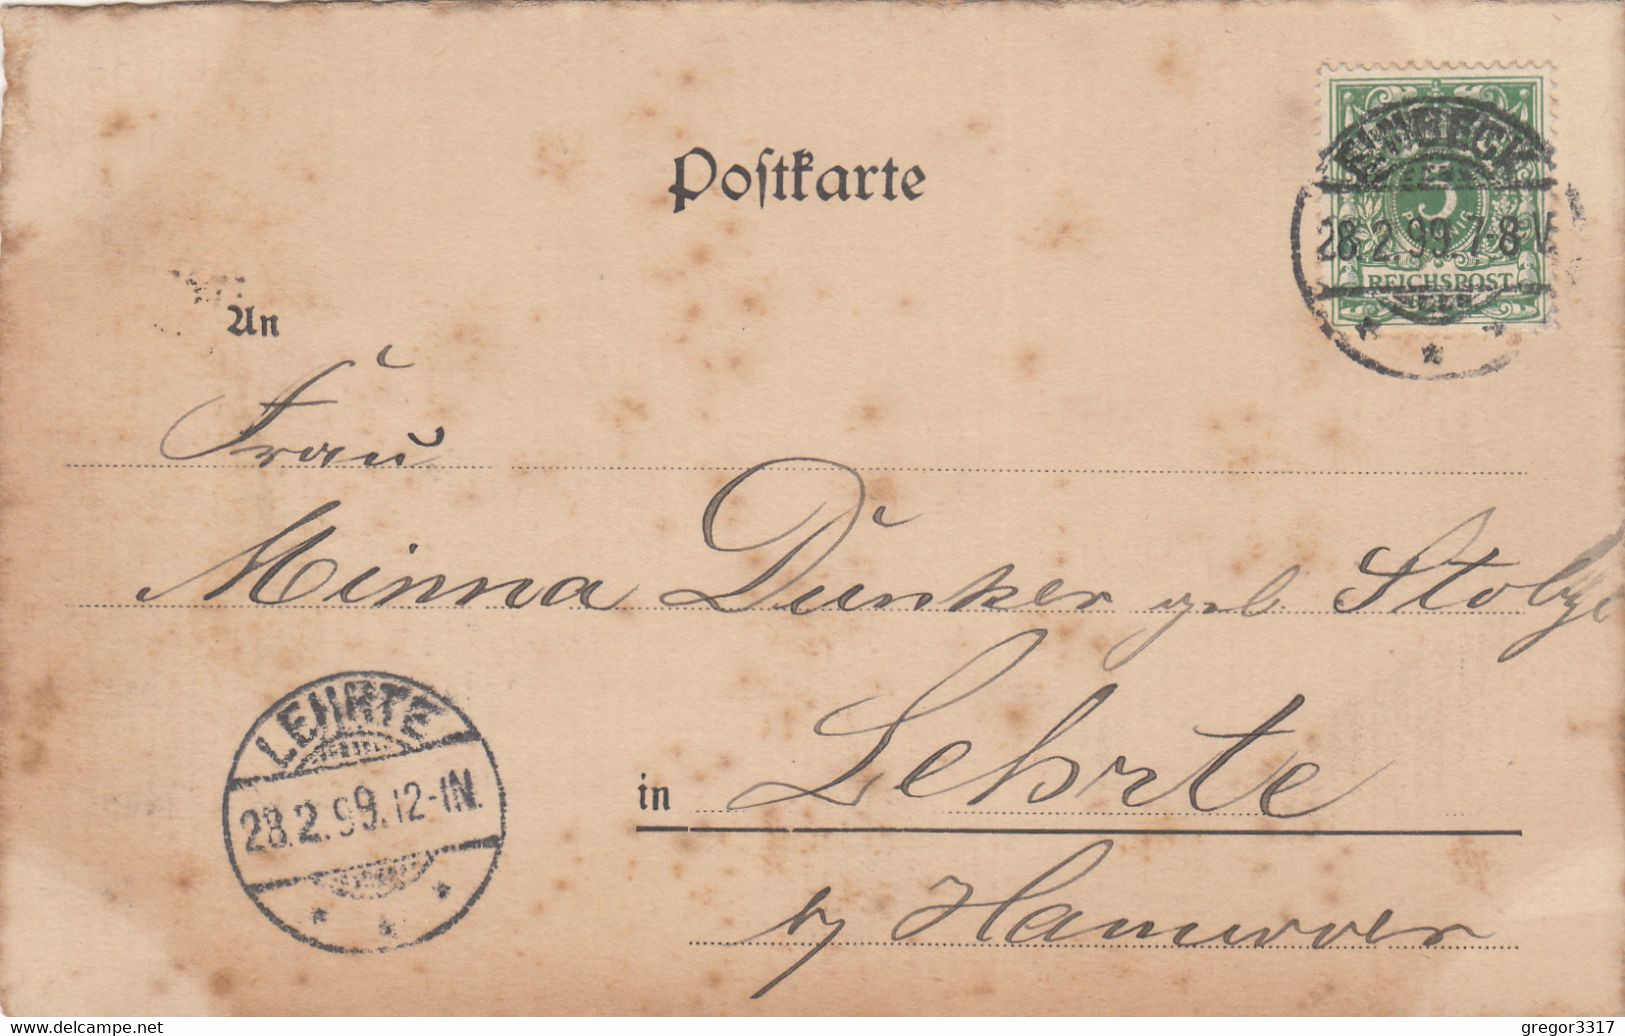 Postkarte
EINBECK
5
PFENNIG
28.2.99.7-8V.
REICHSPOST
An
Frau
Minna Dunker geb.
LEHRTE
28.2.99.12-1N.
in Lehrte
b/ Hannover
www.delcampe.net
gregor3317